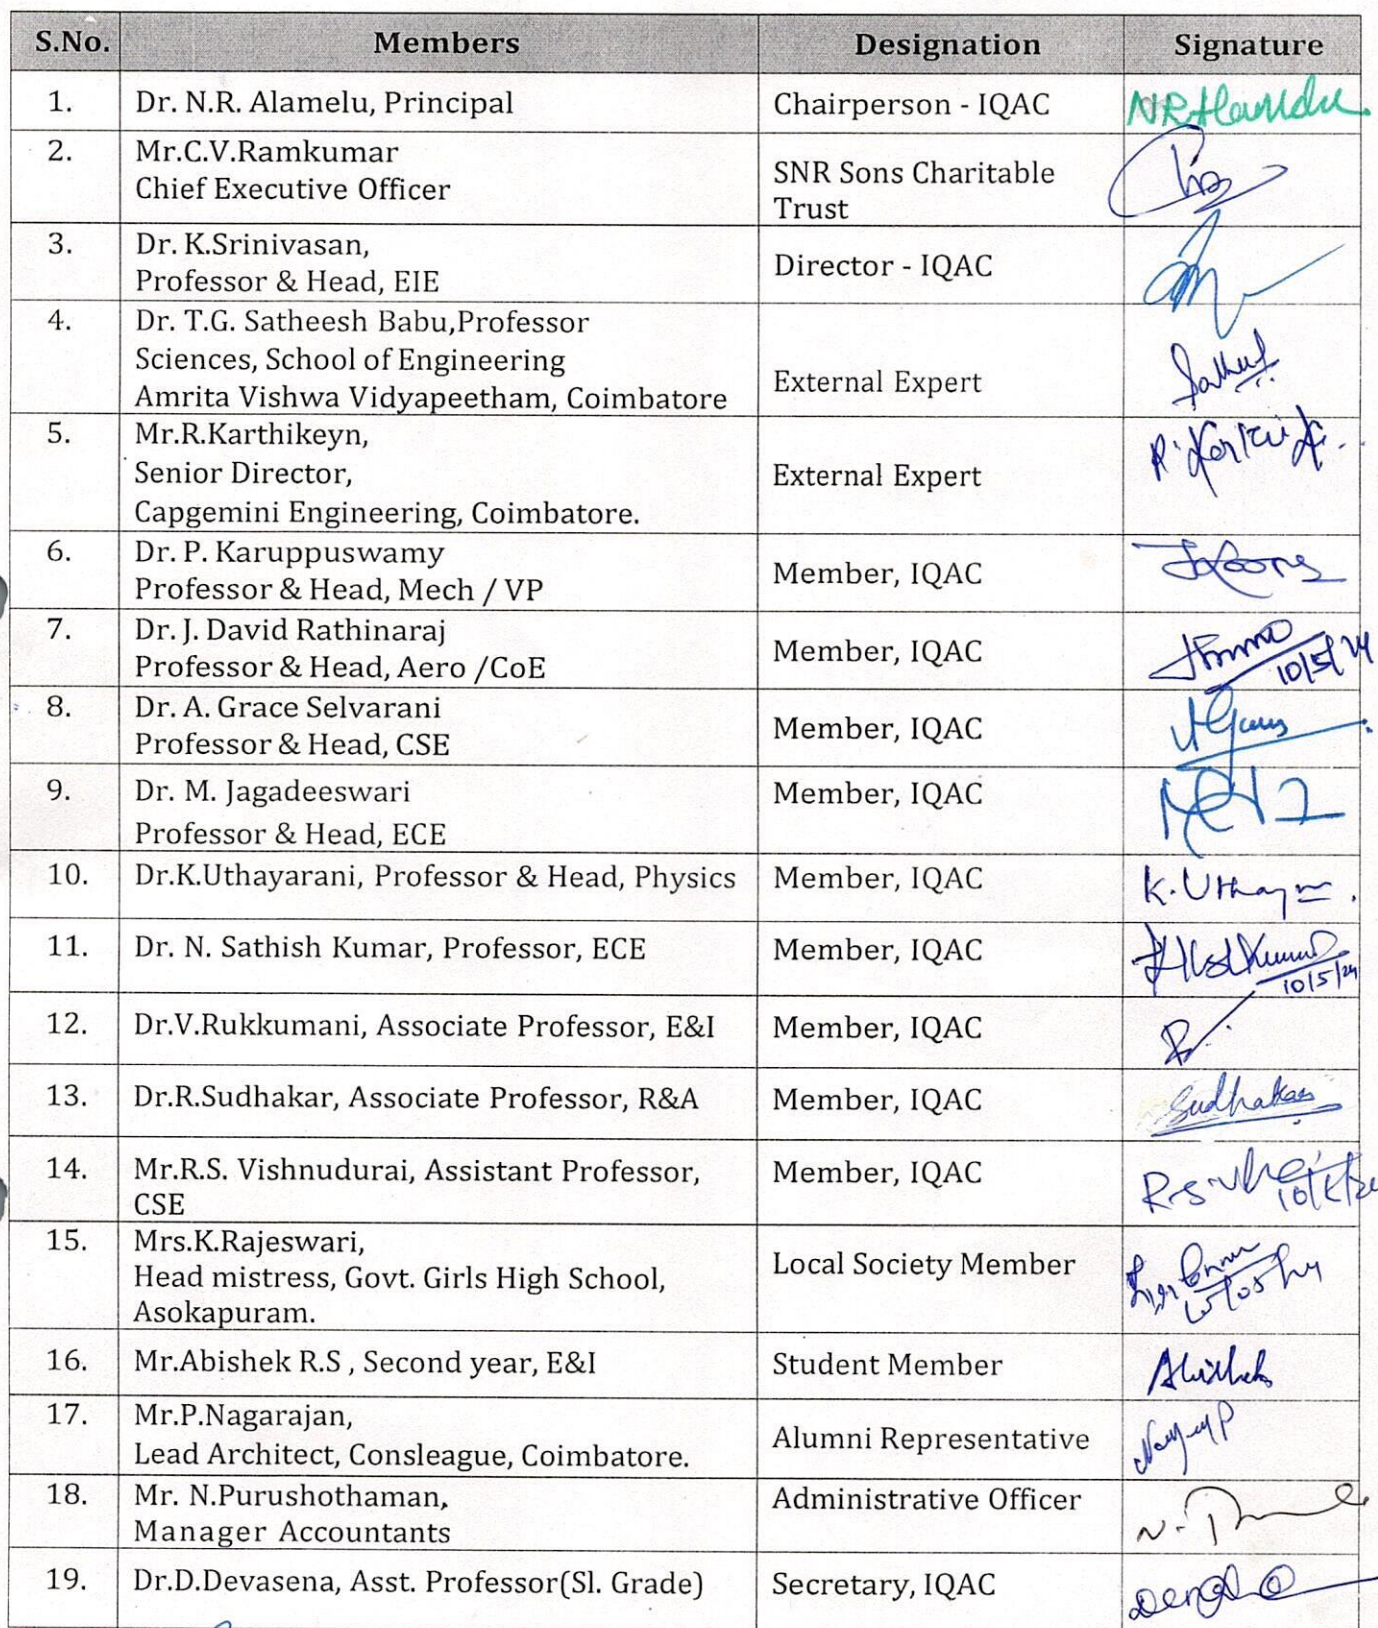 S.No. Members Designation Signature
1. Dr. N.R. Alamelu, Principal Chairperson - IQAC NRAlamelu.
2. Mr.C.V.Ramkumar
Chief Executive Officer
SNR Sons Charitable
Trust
3. Dr. K.Srinivasan,
Professor & Head, EIE
Director - IQAC
4. Dr. T.G. Satheesh Babu,Professor
Sciences, School of Engineering
Amrita Vishwa Vidyapeetham, Coimbatore
External Expert
5. Mr.R.Karthikeyn,
Senior Director,
Capgemini Engineering, Coimbatore.
External Expert
6. Dr. P. Karuppuswamy
Professor & Head, Mech / VP
Member, IQAC
7. Dr. J. David Rathinaraj
Professor & Head, Aero /CoE
Member, IQAC
10/5/24
8. Dr. A. Grace Selvarani
Professor & Head, CSE
Member, IQAC
9. Dr. M. Jagadeeswari
Professor & Head, ECE
Member, IQAC
10. Dr.K.Uthayarani, Professor & Head, Physics Member, IQAC
11. Dr. N. Sathish Kumar, Professor, ECE Member, IQAC
10/5/24
12. Dr.V.Rukkumani, Associate Professor, E&I Member, IQAC
13. Dr.R.Sudhakar, Associate Professor, R&A Member, IQAC Sudhakar
14. Mr.R.S. Vishnudurai, Assistant Professor,
CSE
Member, IQAC
15. Mrs.K.Rajeswari,
Head mistress, Govt. Girls High School,
Asokapuram.
Local Society Member
16. Mr.Abishek R.S , Second year, E&I Student Member Abishek
17. Mr.P.Nagarajan,
Lead Architect, Consleague, Coimbatore.
Alumni Representative
18. Mr. N.Purushothaman,
Manager Accountants
Administrative Officer
19. Dr.D.Devasena, Asst. Professor(Sl. Grade) Secretary, IQAC